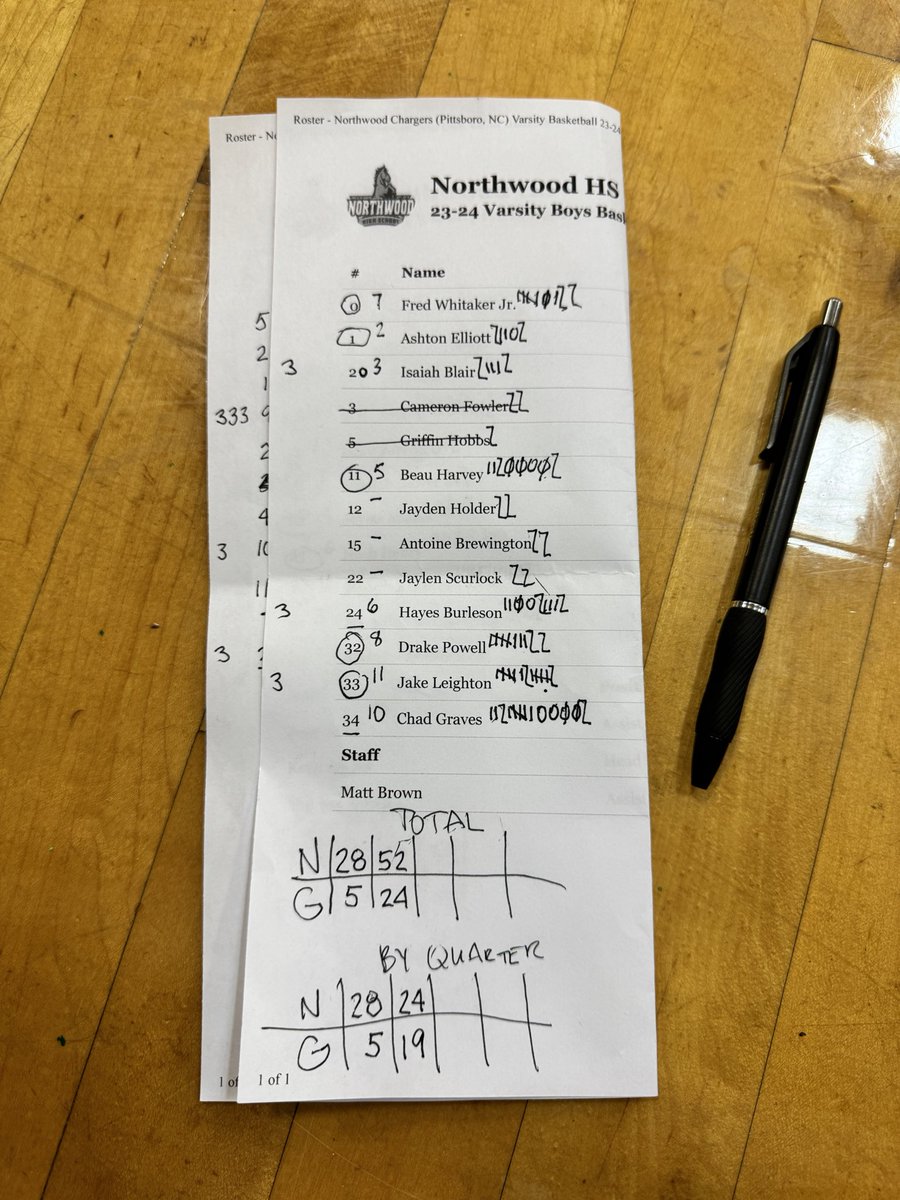 Roster - Northwood Chargers (Pittsboro, NC) Varsity Basketball 23-24
Roster - No
NORTHWOOD
HIGH SCHOOL
Northwood HS
23-24 Varsity Boys Bas
# Name
0 7 Fred Whitaker Jr.
1 2 Ashton Elliott
3 20 3 Isaiah Blair
3 Cameron Fowler
5 Griffin Hobbs
11 5 Beau Harvey
12 - Jayden Holder
15 - Antoine Brewington
22 - Jaylen Scurlock
3 24 6 Hayes Burleson
32 8 Drake Powell
3 33 11 Jake Leighton
34 10 Chad Graves
Staff
Matt Brown
5
2
1
333 9
2
4
3 10
11
3
TOTAL
N 28 52
G 5 24
BY QUARTER
N 28 24
G 5 19
1 of
1 of 1